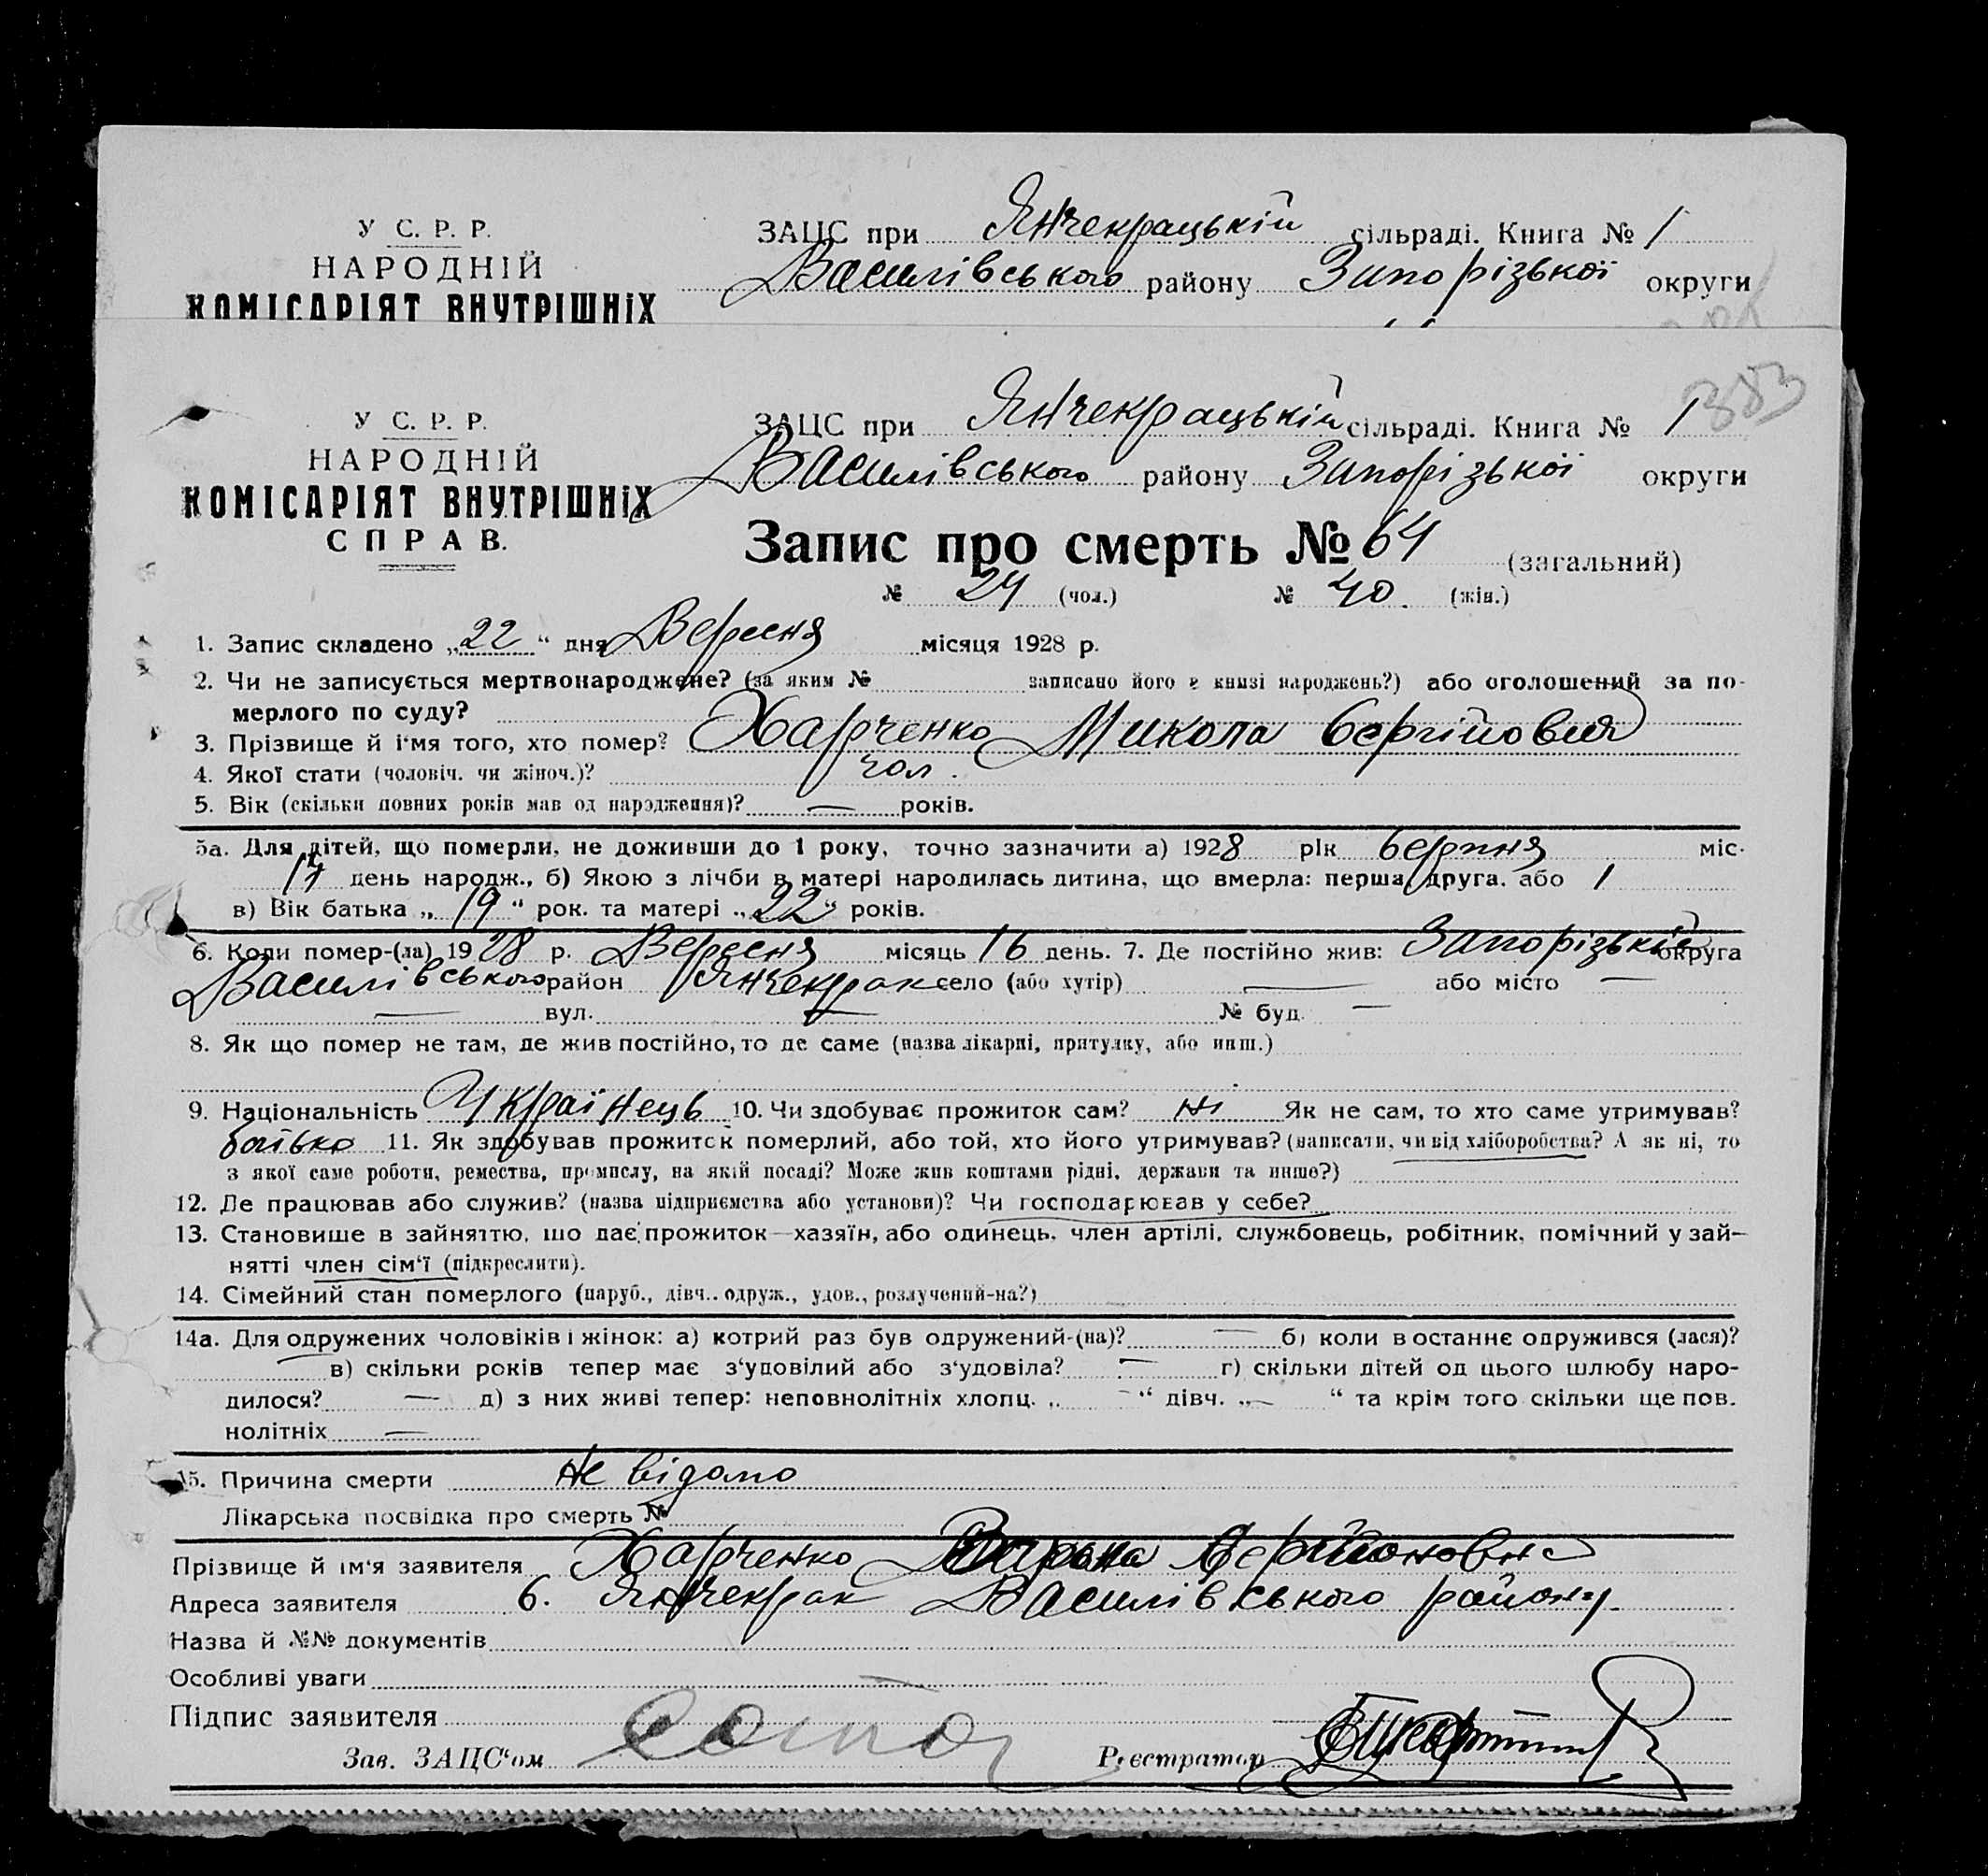 У С. Р. Р.
НАРОДНІЙ
КОМІСАРІЯТ ВНУТРІШНІХ
ЗАЦС при Янчекрацькій сільраді. Книга № 1
Василівського району Запорізької округи
383
У С. Р. Р.
НАРОДНІЙ
КОМІСАРІЯТ ВНУТРІШНІХ
СПРАВ.
ЗАЦС при Янчекрацькій сільраді. Книга № 1
Василівського району Запорізької округи
Запис про смерть № 64 (загальний)
№ 24 (чол.) № 40. (жін.)
1. Запис складено „22“ дня Вересня місяця 1928 р.
2. Чи не записується мертвонароджене? (за яким № записано його в книзі народжень?) або оголошений за по-
мерлого по суду?
3. Прізвище й і'мя того, хто помер? Харченко Микола Сергійович
4. Якої стати (чоловіч. чи жіноч.)? чол.
5. Вік (скільки повних років мав од народження)? — років.
5а. Для дітей, що померли, не доживши до 1 року, точно зазначити а) 1928 рік Серпня міс.
17 день народж., б) Якою з лічби в матері народилась дитина, що вмерла: перша, друга. або 1
в) Вік батька „19“ рок. та матері „22“ років.
6. Коли помер-(ла) 1928 р. Вересня місяць 16 день. 7. Де постійно жив: Запорізької округа
Василівського район Янчекрак село (або хутір) — або місто —
— вул. — № буд. —
8. Як що помер не там, де жив постійно, то де саме (назва лікарні, притулку, або инш.)
9. Національність Українець 10. Чи здобуває прожиток сам? ні Як не сам, то хто саме утримував?
батько 11. Як здобував прожиток померлий, або той, хто його утримував? (написати, чи від хліборобства? А як ні, то
з якої саме роботи, ремества, промислу, на якій посаді? Може жив коштами рідні, держави та инше?)
12. Де працював або служив? (назва підприємства або установи)? Чи господарював у себе?
13. Становище в зайняттю, що дає прожиток—хазяїн, або одинець, член артілі, службовець, робітник, помічний у зай-
нятті член сім'ї (підкреслити).
14. Сімейний стан померлого (паруб., дівч.. одруж., удов., розлучений-на?)
14а. Для одружених чоловіків і жінок: а) котрий раз був одружений-(на)? — б) коли востаннє одружився (лася)?
в) скільки років тепер має з'удовілий або з'удовіла? — г) скільки дітей од цього шлюбу наро-
дилося? — д) з них живі тепер: неповнолітніх хлопц. „ —“ дівч. „— “ та крім того скільки ще пов.
нолітніх —
15. Причина смерти Не відомо
Лікарська посвідка про смерть №
Прізвище й ім'я заявителя Харченко
Адреса заявителя С. Янчекрак Василівського району.
Назва й №№ документів
Особливі уваги
Підпис заявителя
Зав. ЗАЦС'ом Реєстратор